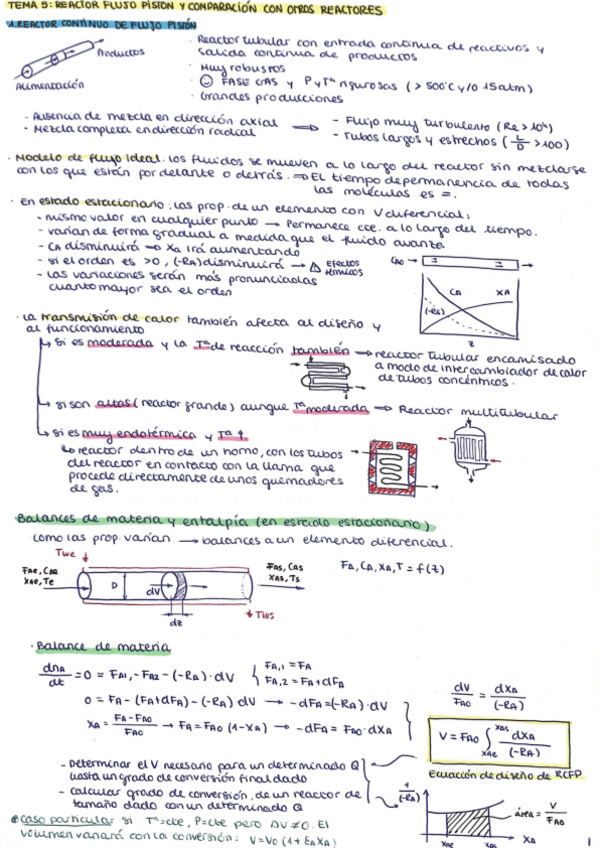 TEMA 5: REACTOR FLUJO PISTON Y COMPARACIÓN CON OTROS REACTORES
1. REACTOR CONTINUO DE FLUJO PISTÓN
Productos
Alimentación
· Reactor tubular con entrada continua de reactivos y
salida continua de productos
· Muy robustos
· FASE GAS y P y Tª rigurosas (>500ºC y/o 15atm)
· Grandes producciones
- Ausencia de mezcla en dirección axial
- Mezcla completa en dirección radical
→ - Flujo muy turbulento (Re > 10⁴)
- Tubos largos y estrechos (L/D > 100)
· Modelo de flujo ideal: los fluidos se mueven a lo largo del reactor sin mezclarse
con los que están por delante o detrás. ⇒ El tiempo de permanencia de todas
las moléculas es =.
· En estado estacionario: las prop. de un elemento con V diferencial:
- mismo valor en cualquier punto → Permanece cte. a lo largo del tiempo.
- varían de forma gradual a medida que el fluido avanza
- CA disminuirá → XA irá aumentando
- si el orden es >0, (-RA) disminuirá → △ Efectos
térmicos
- las variaciones serán más pronunciadas
cuanto mayor sea el orden
CAO
CA
XA
(-RA)
z
· La transmisión de calor también afecta al diseño y
al funcionamiento
↳ si es moderada y la Tª de reacción también → reactor tubular encamisado
a modo de intercambiador de calor
de tubos concéntricos.
↳ si son altas (reactor grande) aunque Tª moderada → Reactor multitubular
↳ si es muy endotérmica y Tª ↑
↳ reactor dentro de un horno, con los tubos
del reactor en contacto con la llama que
procede directamente de unos quemadores
de gas.
Balances de materia y entalpía (en estado estacionario)
como las prop. varían → balances a un elemento diferencial.
Twe
FAe, CAe
XAe, Te
D
dV
dz
FAS, CAS
XAS, TS
Tws
FA, CA, XA, T = f(z)
· Balance de materia
dnA/dt = 0 = FA1 - FA2 - (-RA)·dV { FA,1 = FA
FA,2 = FA + dFA
0 = FA - (FA + dFA) - (-RA) dV → - dFA = (-RA)·dV
XA = FA - FAO / FAO → FA = FAO (1-XA) → - dFA = FAO·dXA
dV/FAO = dXA/(-RA)
V = FAO ∫ XAe XAS dXA/(-RA)
Ecuación de diseño de RCFP
- Determinar el V necesario para un determinado Q
hasta un grado de conversión final dado
- calcular grado de conversión, de un reactor de
tamaño dado con un determinado Q
1/(-RA)
área = V/FAO
XAe
XAS
XA
caso particular si Tª=cte, P=cte pero ΔV≠0. El
volumen variará con la conversión: V = V0 (1 + εA XA)
1